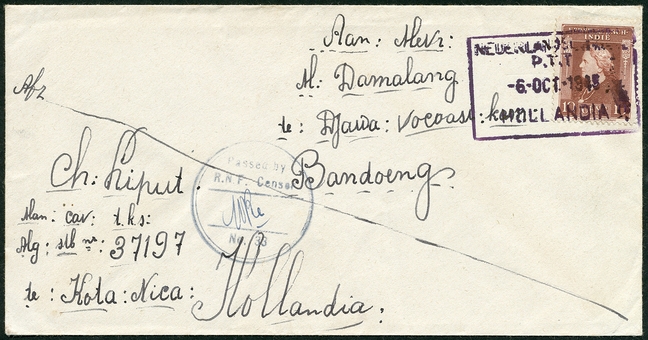 Aan: Mevr:
M: Damalang
te: Djawa:
Bandoeng
NEDERLANDSCH INDIE
P.T.T
-6-OCT-1945
HOLLANDIA
INDIE
Afz
Ch: Liput.
Man: cav: t.k.s:
Alg: stb nr: 37197
te: Kota: Nica: Hollandia.
Passed by
R.N.F. Censor
No. 33